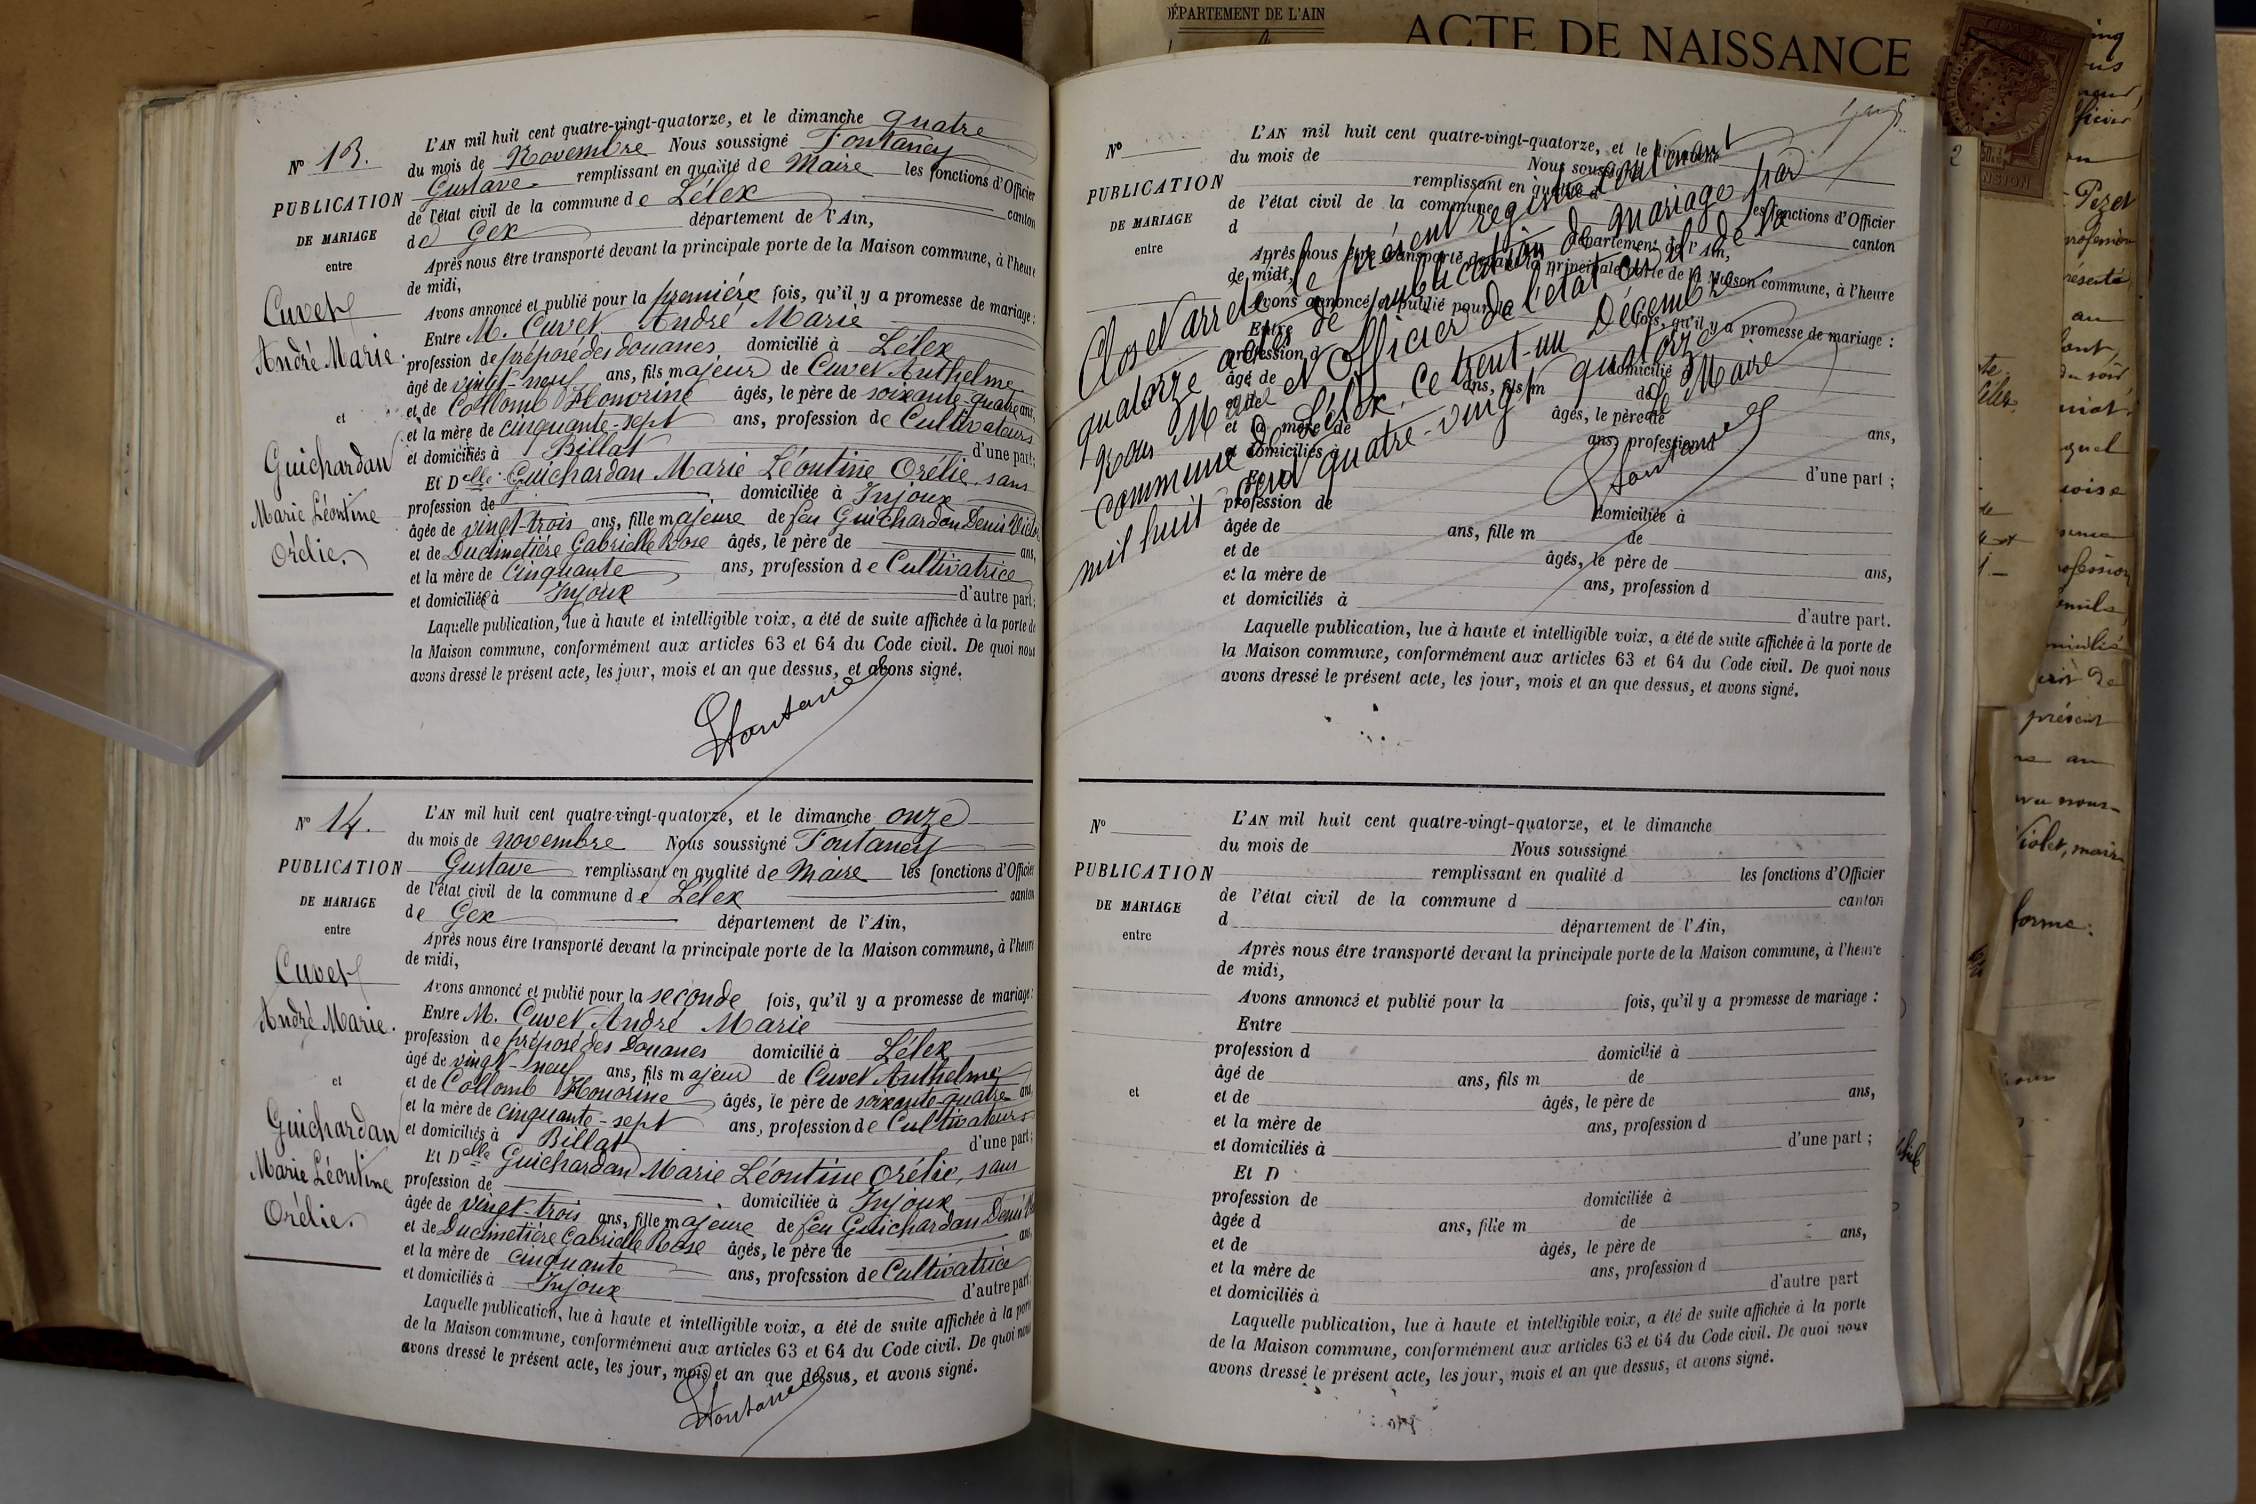 N° 13.
PUBLICATION
DE MARIAGE
entre
Cuvet
André Marie.
et
Guichardan
Marie Léontine
Orélie.
L'AN mil huit cent quatre-vingt-quatorze, et le dimanche quatre
du mois de Novembre Nous soussigné Fontaney
Gustave remplissant en qualité de Maire les fonctions d'Officier
de l'état civil de la commune de Lélex canton
de Gex département de l'Ain,
Après nous être transporté devant la principale porte de la Maison commune, à l'heure
de midi,
Avons annoncé et publié pour la première fois, qu'il y a promesse de mariage :
Entre M. Cuvet André Marie
profession de préposé des douanes domicilié à Lélex
âgé de vingt-neuf ans, fils majeur de Cuvet Anthelme
et de Collomb Honorine âgés, le père de soixante-quatre ans,
et la mère de cinquante-sept ans, profession de Cultivateurs
et domiciliés à Billat d'une part ;
Et Delle Guichardan Marie Léontine Orélie, sans
profession de domiciliée à Injoux
âgée de vingt-trois ans, fille majeure de feu Guichardan Denis Victor
et de Ducimetière Gabrielle Rose âgés, le père de ans,
et la mère de Cinquante ans, profession de Cultivatrice
et domiciliés à Injoux d'autre part ;
Laquelle publication, lue à haute et intelligible voix, a été de suite affichée à la porte de
la Maison commune, conformément aux articles 63 et 64 du Code civil. De quoi nous
avons dressé le présent acte, les jour, mois et an que dessus, et avons signé.
GFontaney
N° 14.
PUBLICATION
DE MARIAGE
entre
Cuvet
André Marie.
et
Guichardan
Marie Léontine
Orélie.
L'AN mil huit cent quatre-vingt-quatorze, et le dimanche onze
du mois de novembre Nous soussigné Fontaney
Gustave remplissant en qualité de Maire les fonctions d'Officier
de l'état civil de la commune de Lélex canton
de Gex département de l'Ain,
Après nous être transporté devant la principale porte de la Maison commune, à l'heure
de midi,
Avons annoncé et publié pour la seconde fois, qu'il y a promesse de mariage :
Entre M. Cuvet André Marie
profession de préposé des Douanes domicilié à Lélex
âgé de vingt-neuf ans, fils majeur de Cuvet Anthelme
et de Collomb Honorine âgés, le père de soixante-quatre ans,
et la mère de cinquante-sept ans, profession de Cultivateurs
et domiciliés à Billat d'une part ;
Et Delle Guichardan Marie Léontine Orélie, sans
profession de domiciliée à Injoux
âgée de vingt-trois ans, fille majeure de feu Guichardan Denis
et de Ducimetière Gabrielle Rose âgés, le père de ans,
et la mère de cinquante ans, profession de Cultivatrice
et domiciliés à Injoux d'autre part
Laquelle publication, lue à haute et intelligible voix, a été de suite affichée à la porte
de la Maison commune, conformément aux articles 63 et 64 du Code civil. De quoi nous
avons dressé le présent acte, les jour, mois et an que dessus, et avons signé.
GFontaney
DÉPARTEMENT DE L'AIN
ACTE DE NAISSANCE
N°
PUBLICATION
DE MARIAGE
entre
L'AN mil huit cent quatre-vingt-quatorze, et le dimanche
du mois de Nous soussigné
remplissant en qualité d les fonctions d'Officier
de l'état civil de la commune d canton
d département de l'Ain,
Après nous être transporté devant la principale porte de la Maison commune, à l'heure
de midi,
Avons annoncé et publié pour la fois, qu'il y a promesse de mariage :
Entre
profession d domicilié à
âgé de ans, fils m de
et de âgés, le père de ans,
et la mère de ans, profession d
et domiciliés à d'une part ;
Et D
profession de domiciliée à
âgée de ans, fille m de
et de âgés, le père de ans,
et la mère de ans, profession d
et domiciliés à d'autre part.
Laquelle publication, lue à haute et intelligible voix, a été de suite affichée à la porte de
la Maison commune, conformément aux articles 63 et 64 du Code civil. De quoi nous
avons dressé le présent acte, les jour, mois et an que dessus, et avons signé.
Clos et arrêté le présent registre contenant
quatorze actes de publication de mariage par
Nous Maire et Officier de l'état civil de la
commune de Lélex, ce trent-un Décembre
mil huit cent quatre-vingt quatorze
Le Maire
GFontaney
N°
PUBLICATION
DE MARIAGE
entre
et
L'AN mil huit cent quatre-vingt-quatorze, et le dimanche
du mois de Nous soussigné
remplissant en qualité d les fonctions d'Officier
de l'état civil de la commune d canton
d département de l'Ain,
Après nous être transporté devant la principale porte de la Maison commune, à l'heure
de midi,
Avons annoncé et publié pour la fois, qu'il y a promesse de mariage :
Entre
profession d domicilié à
âgé de ans, fils m de
et de âgés, le père de ans,
et la mère de ans, profession d
et domiciliés à d'une part ;
Et D
profession de domiciliée à
âgée d ans, fille m de
et de âgés, le père de ans,
et la mère de ans, profession d
et domiciliés à d'autre part
Laquelle publication, lue à haute et intelligible voix, a été de suite affichée à la porte
de la Maison commune, conformément aux articles 63 et 64 du Code civil. De quoi nous
avons dressé le présent acte, les jour, mois et an que dessus, et avons signé.
2
Pezet
profession
au
du soir,
quel
présent
Violet, maire
forme :